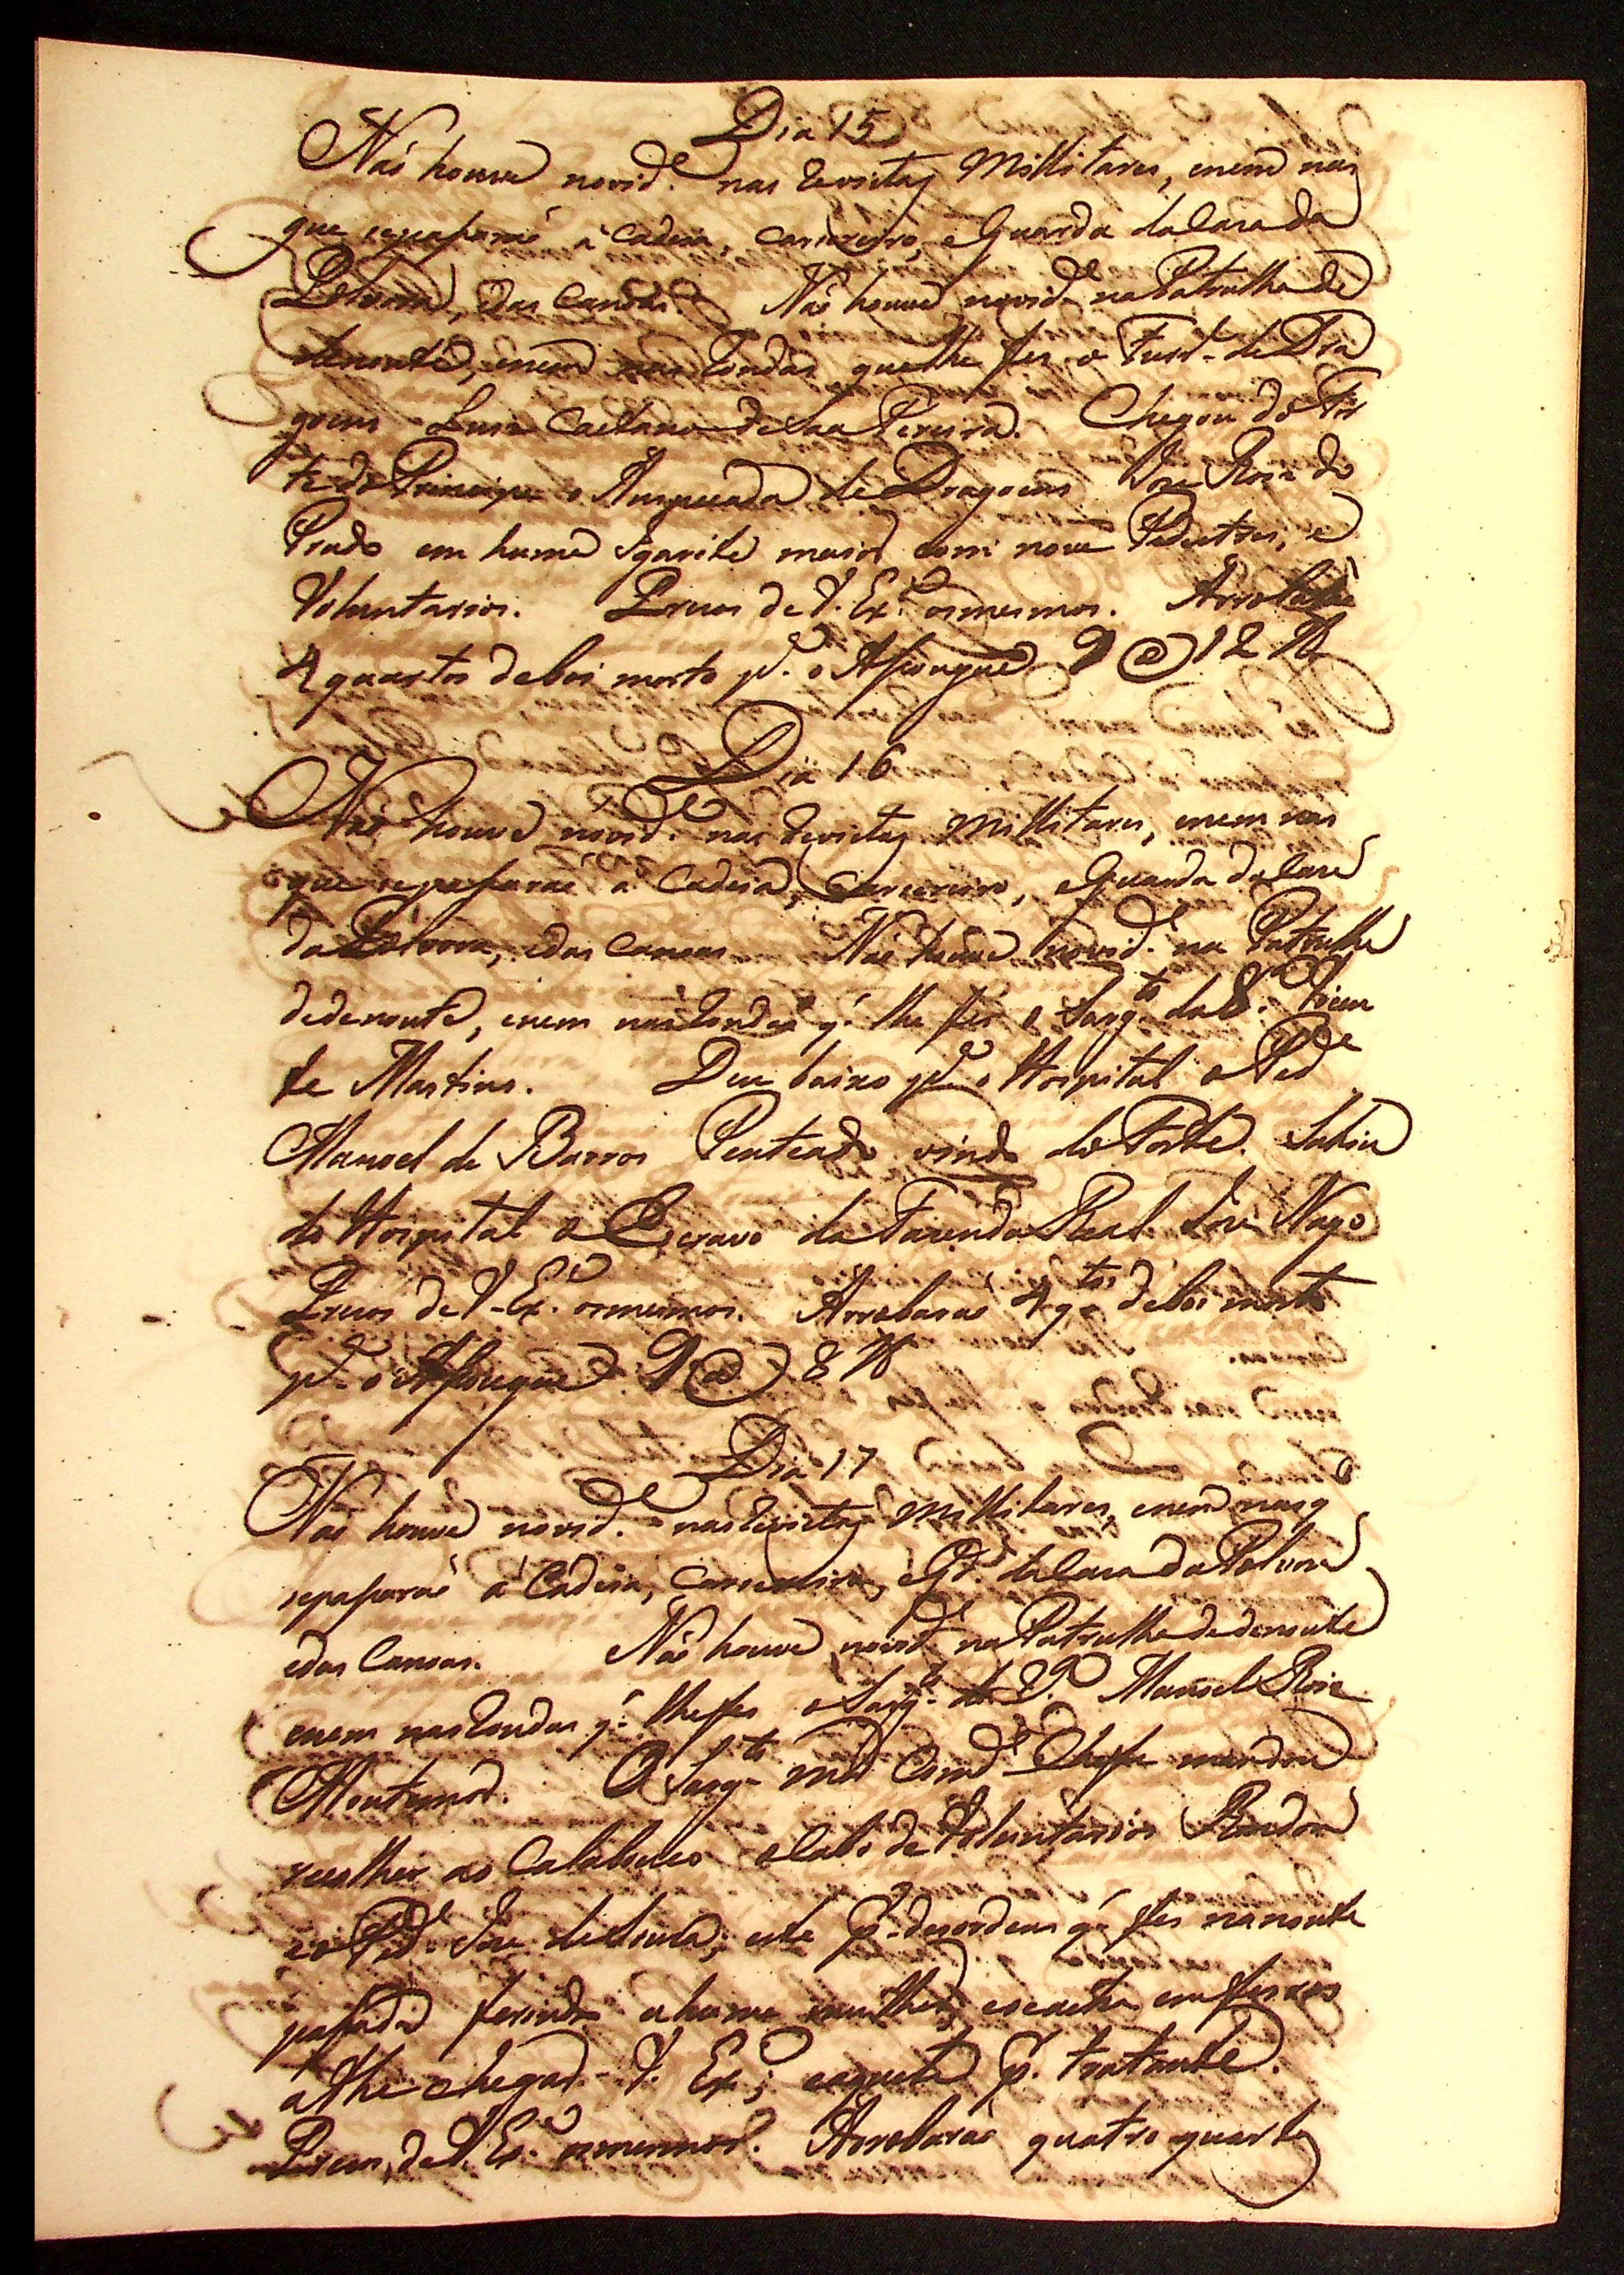 Dia 15
Não houve novid.e nas Revistas Millitares, enem nas
que sepasarão á Cadeia, Carcereiro, eGuarda daCaza da
Polvora, edas Canôas. Não houve novid.e naPatrulha de
denoute, enem nas Rondas quelhe fes o Furr.el de Dra
goens Luis Caetano deSaa Pereira. Chegou do For
te do Principe o Anspecada de Dragoens Joze Roiz do
Prado em huma Igarite maior com nove Pedestres, e
Voluntarios. Prezos de V. Ex.a osmesmos. Arrobarão
4 quartos deboi morto p.a o Asougue 9 @ 12 lb
Dia 16
Não houve novid.e nas Revistas Millitares, enem nas
que sepasarão á Cadeia, Carcereiro, eGuarda daCaza
da Polvora, edas Canoas Não houve novid.e na Patrulha
dedenoute, enem nasRondas q.' lhe fes o Sarg.to da 8.a Vicen
te Martins. Deu baixa p.a o Hospital o Ped.e
Manoel de Barros Penteado vindo do Forte. Sahiu
do Hospital o Escravo da Fazenda Real Joze Nago
Prezos de V. Ex.a osmesmos. Arrobarão 4 q.tos deboi morto
p.a o Asougue 9 @ 8 lb
Dia 17
Não houve novid.e nasRevistas Millitares, enem nasq
sepasarão á Cadeia, Carcereiro, eG.da daCaza da Polvora
edas Canoas. Não houve novid.e naPatrulha dedenoute
enem nasRondas q.' lhefes o Sarg.to da 2.a Manoel Roiz
Montemor. O Sarg.to mor Comd.e Cheffe mandou
recolher ao Calabouco o Cabo de Voluntarios Rondon
eo Ped.e Joze deSouza; este p.r desordens q.' fes nanoute
pasada ferindo ahuma mulher, eseacha emferros
athe chegar V. Ex.a; eaquele p.r tratante.
Prezos de V. Ex.a osmesmos. Arrobarão quatro quartos